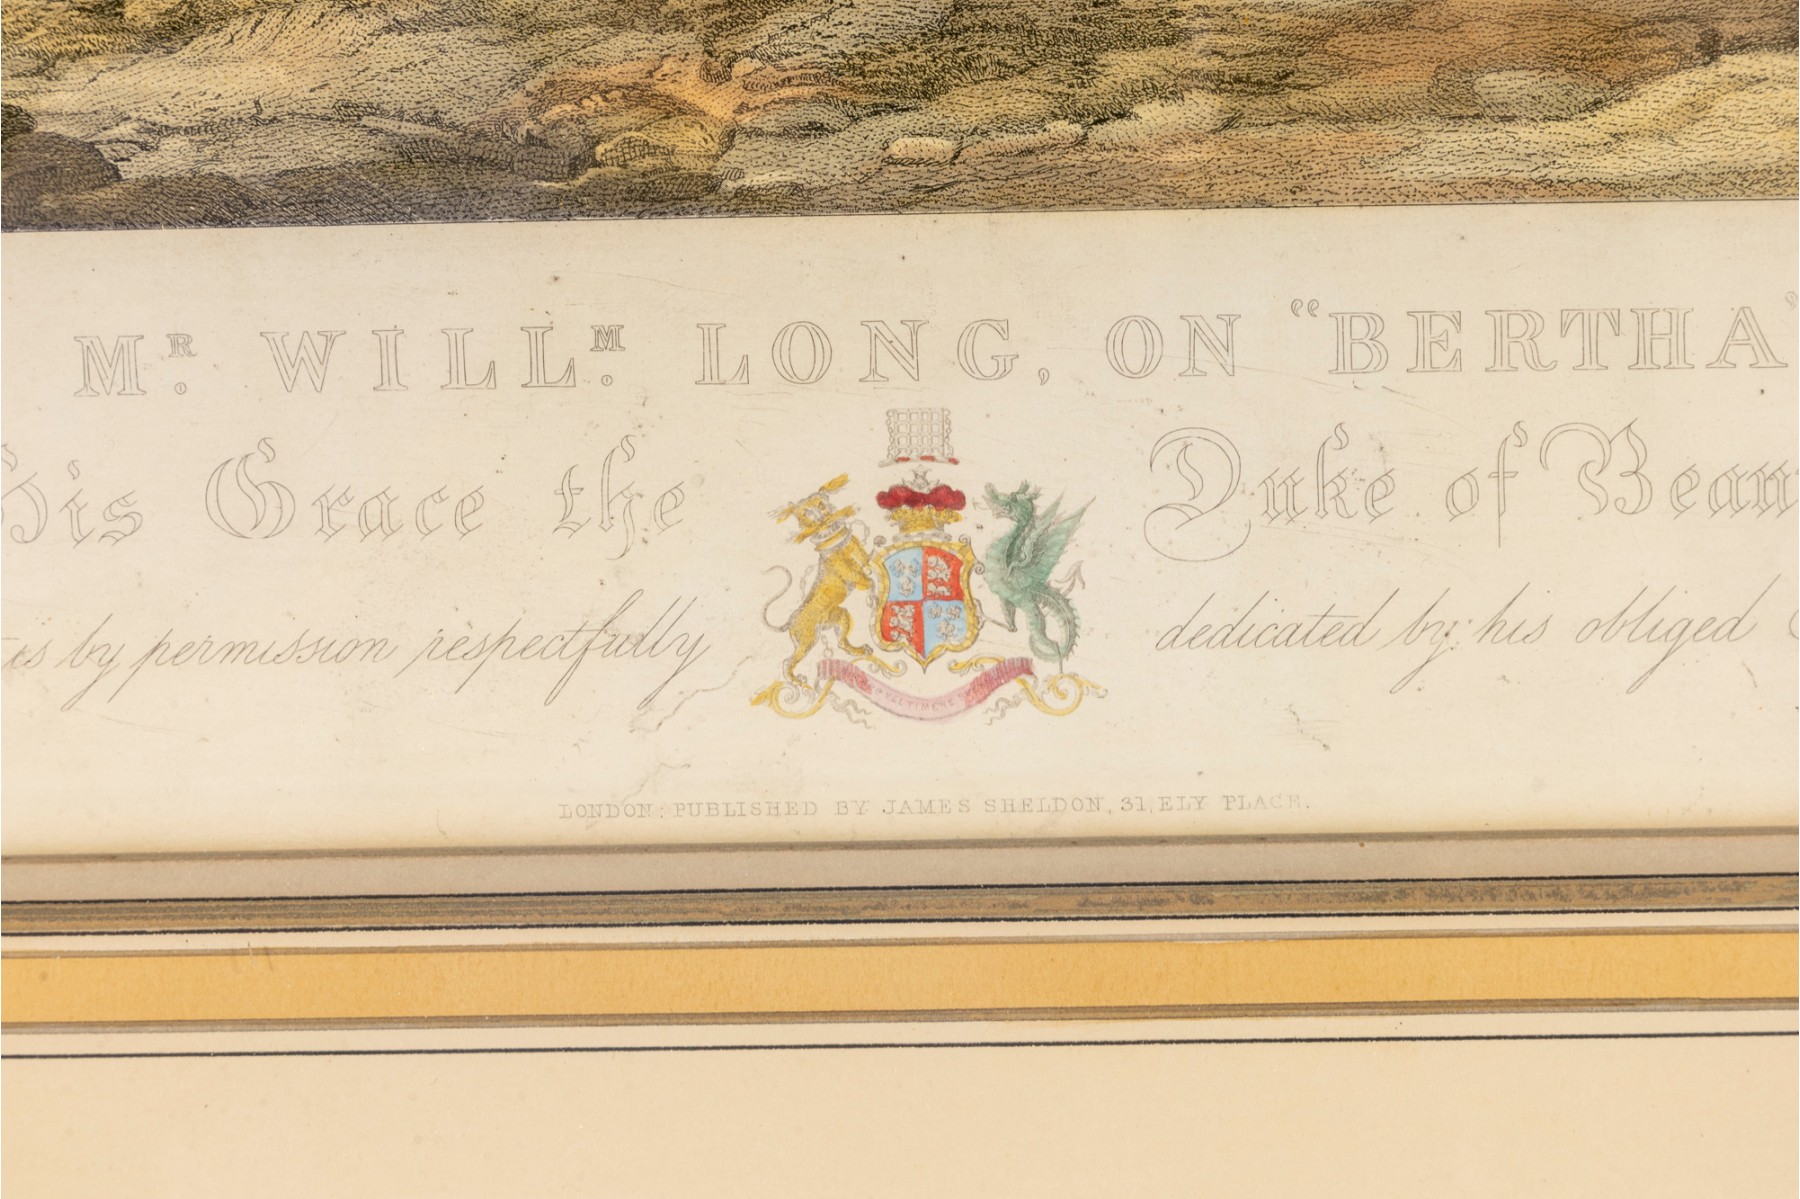 MR. WILLM. LONG, ON "BERTHA"
His Grace the Duke of
by permission respectfully dedicated by his obliged
LONDON: PUBLISHED BY JAMES SHELDON, 31, ELY PLACE.